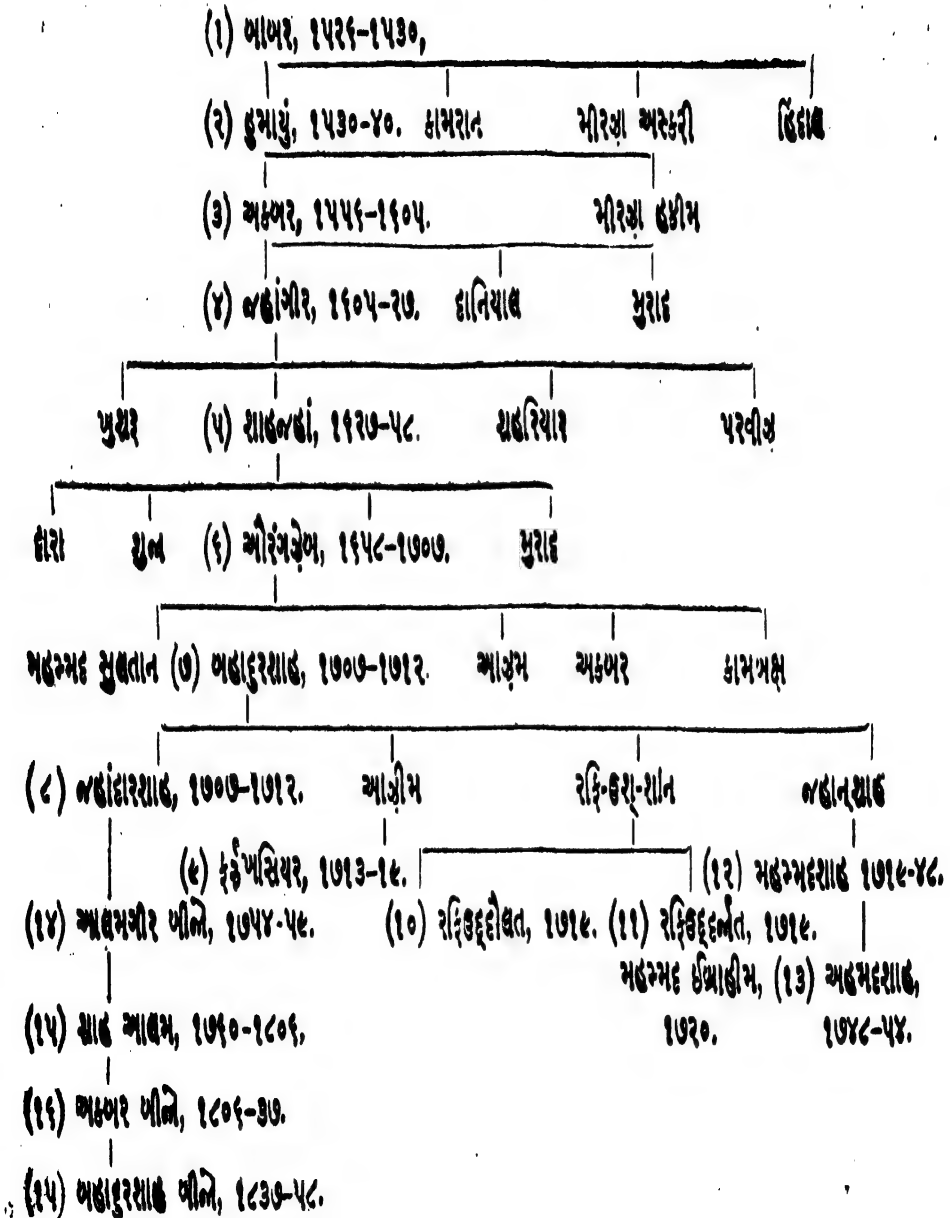 (૧) બાબર, ૧૫૨૬-૧૫૩૦,
(૨) હુમાયું, ૧૫૩૦-૪૦. કામરાન મીરઝા અસ્કરી હિંદાલ
(૩) અકબર, ૧૫૫૬-૧૬૦૫. મીરઝા હકીમ
(૪) જહાંગીર, ૧૬૦૫-૨૭. દાનિયાલ મુરાદ
ખુશરૂ (૫) શાહજહાં, ૧૬૨૭-૫૮. શહરિયાર પરવીઝ
દારા શુજા (૬) ઔરંગઝેબ, ૧૬૫૮-૧૭૦૭. મુરાદ
મહમ્મદ સુલતાન (૭) બહાદુરશાહ, ૧૭૦૭-૧૭૧૨. આઝમ અકબર કામબક્ષ
(૮) જહાંદારશાહ, ૧૭૦૭-૧૭૧૨. આઝીમ રફિ-ઉશ્-શાન જહાન્શાહ
(૯) ફર્રુખસિયર, ૧૭૧૩-૧૯. (૧૨) મહમ્મદશાહ ૧૭૧૯-૪૮.
(૧૪) આલમગીર બીજો, ૧૭૫૪-૫૯. (૧૦) રફિઉદ્દૌલત, ૧૭૧૯. (૧૧) રફિઉદ્દર્જત, ૧૭૧૯.
મહમ્મદ ઈબ્રાહીમ, (૧૩) અહમદશાહ,
(૧૫) શાહ આલમ, ૧૭૬૦-૧૮૦૬, ૧૭૨૦. ૧૭૪૮-૫૪.
(૧૬) અકબર બીજો, ૧૮૦૬-૩૭.
(૧૫) બહાદુરશાહ બીજો, ૧૮૩૭-૫૮.